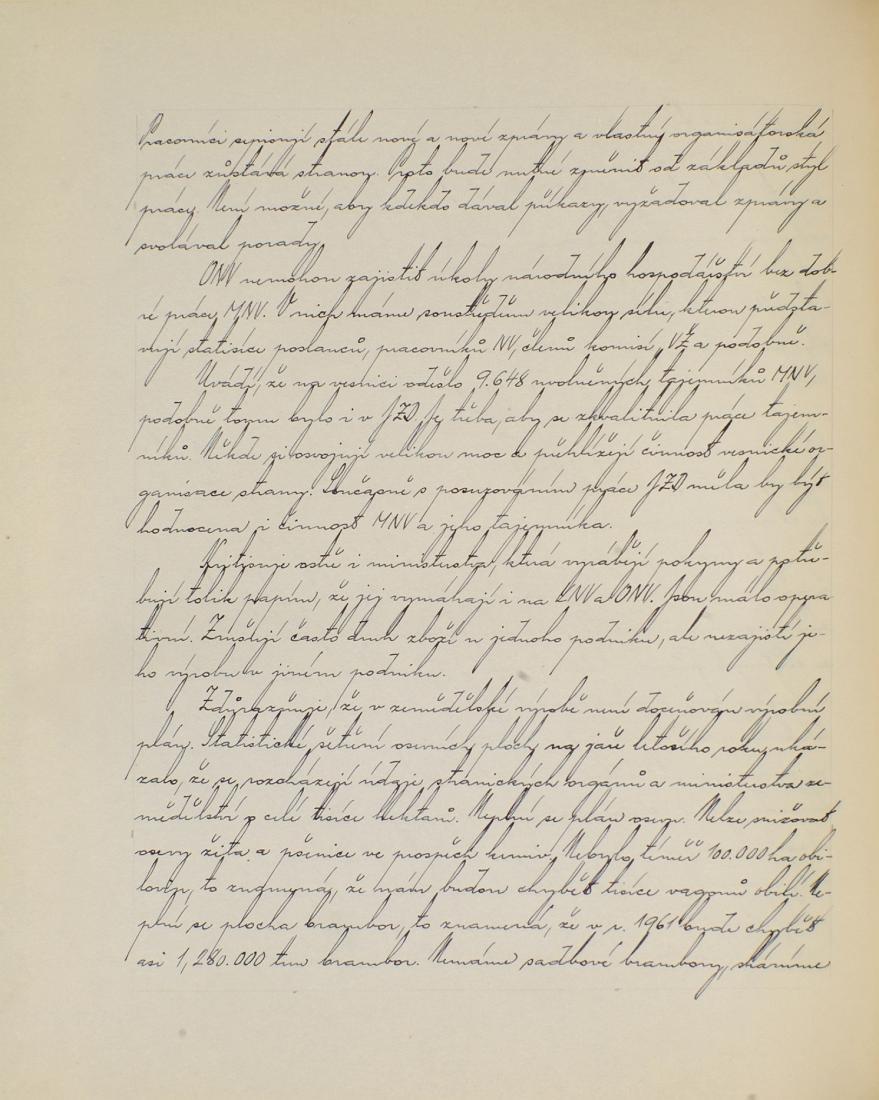 Pracovníci sepisují stále nové a nové zprávy a vlastní organisátorská
práce zůstává stranou. Proto bude nutné změnit od základů styl
práce. Není možné, aby kdekdo dával příkazy, vyžadoval zprávy a
svolával porady.
ONV nemohou zajistit úkoly národního hospodářství bez dob-
ré práce MNV. V nich máme soustředěnu velikou sílu, kterou předsta-
vují statisíce poslanců, pracovníků NV, členů komisí, VŽ a podobně.
Uvádí, že na vesnici odešlo 9.648 uvolněných tajemníků MNV,
podobně tomu bylo i v JZD. Je třeba, aby se zkvalitnila práce tajem-
níků. Někde si osvojují velikou moc a přehlížejí činnost vesnické or-
ganisace strany. Současně s posuzováním práce JZD měla by být
hodnocena i činnost MNV a jeho tajemníka.
Kritisuje ostře i ministerstva, která vyrábějí pokyny a potře-
bují tolik papíru, že jej vymáhají i na KNV a ONV. Jsou málo opera
tivní. Zruší často druh zboží u jednoho podniku, ale nezajistí je-
ho výrobu v jiném podniku.
Zdůrazňuje, že v zemědělské výrobě není doceňován výrobní
plán. Statistické šetření osevních ploch na jaře letošího roku uká-
zalo, že se rozcházejí údaje stranických orgánů a ministerstva ze-
mědělství o celé tisíce hektarů. Neplní se plán osevu. Nelze snižovat
osevy žita a pšenice ve prospěch krmiv. Nebylo téměř 100.000 ha obi-
lovin, to znamená, že nám budou chybět tisíce vagonů obilí. Ne-
plní se plocha brambor, to znamená, že v r. 1961 bude chybět
asi 1,280.000 tun brambor. Nemáme sadbové brambory, sháníme